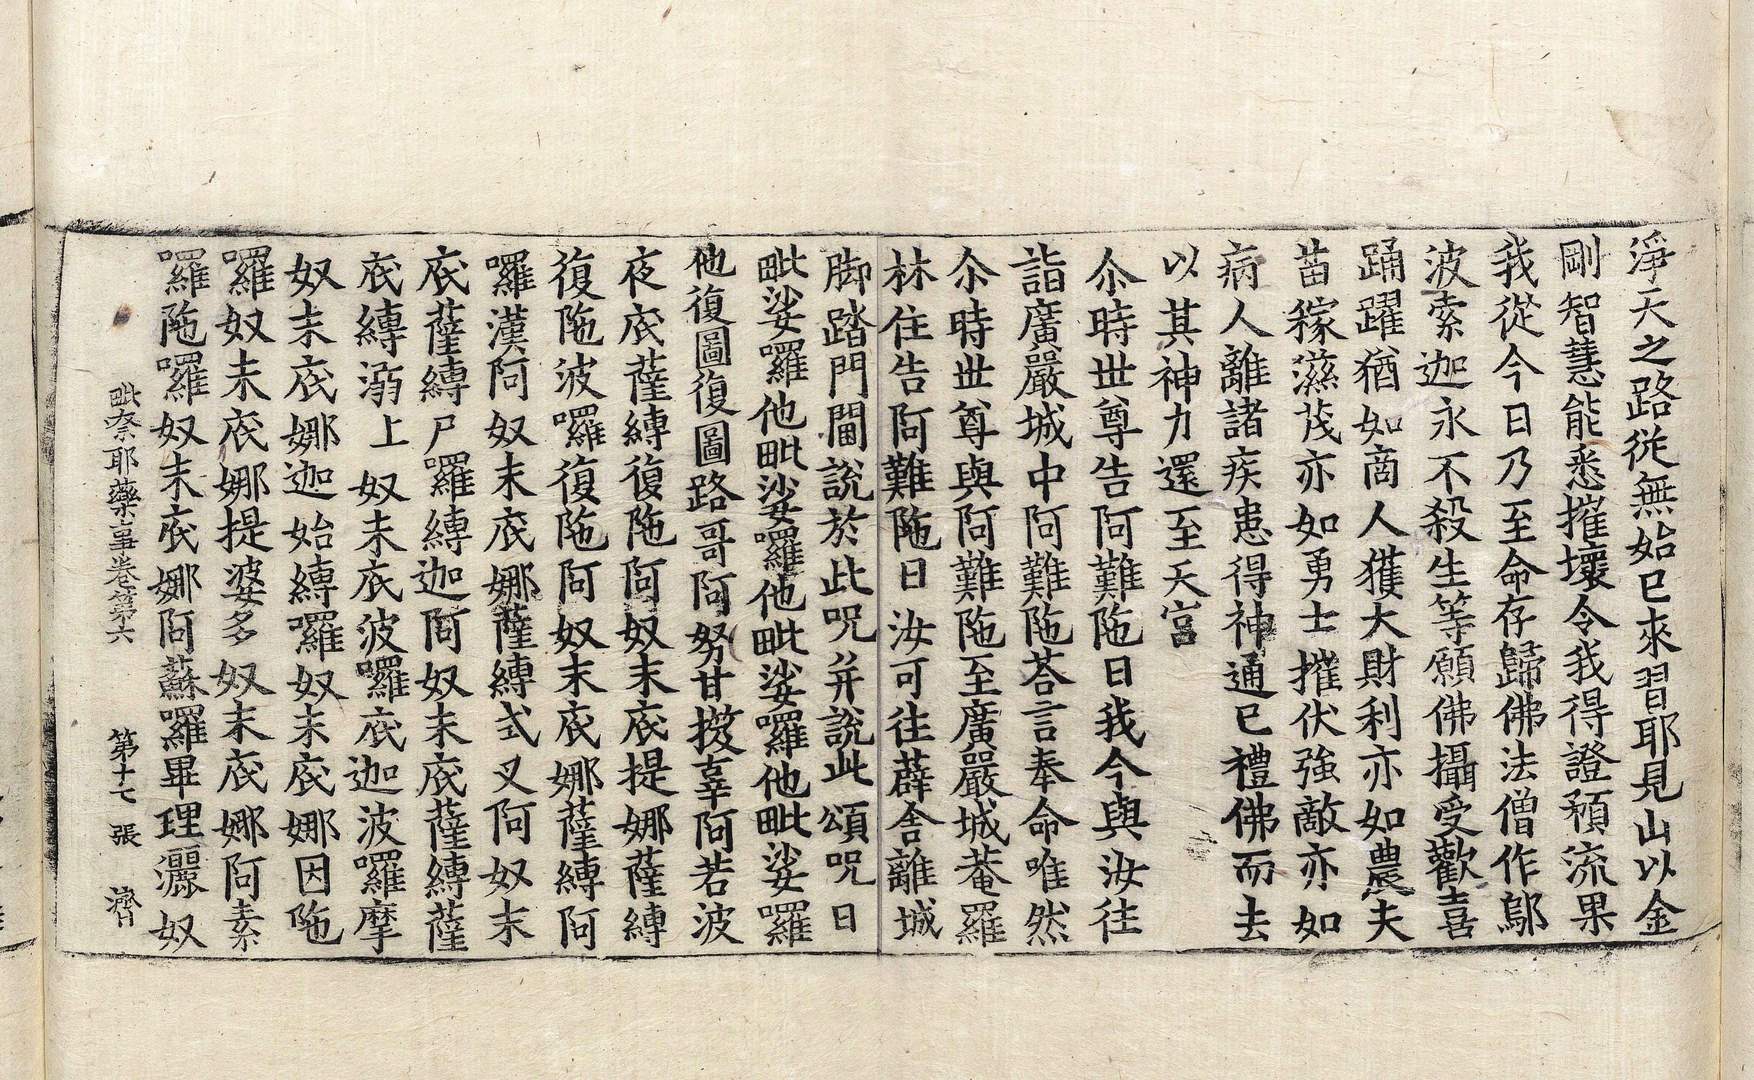 淨天之路從無始已來習耶見山以金
剛智慧能悉摧壞令我得證預流果
我從今日乃至命存歸佛法僧作鄔
波索迦永不殺生等願佛攝受歡喜
踊躍猶如商人獲大財利亦如農夫
苗稼滋茂亦如勇士摧伏強敵亦如
病人離諸疾患得神通已禮佛而去
以其神力還至天宮
尒時世尊告阿難陁曰我今與汝往
詣廣嚴城中阿難陁荅言奉命唯然
尒時世尊與阿難陁至廣嚴城菴羅
林住告阿難陁曰汝可往薜舍離城
脚踏門閫說於此呪并說此頌呪曰
毗娑囉他毗娑囉他毗娑囉他毗娑囉
他復圖復圖路哥阿努甘撥辜阿若波
夜底薩縛復陁阿奴末底提娜薩縛
復陁波囉復陁阿奴末底娜薩縛阿
囉漢阿奴末底娜薩縛式叉阿奴末
底薩縛尸囉縛迦阿奴末底薩縛薩
底縛溺上奴末底波囉底迦波囉摩
奴末底娜迦始縛囉奴末底娜因陁
囉奴末底娜提婆多奴末底娜阿素
囉陁囉奴末底娜阿蘇囉畢理灑奴
毗奈耶藥事卷第六 第十七張 濟